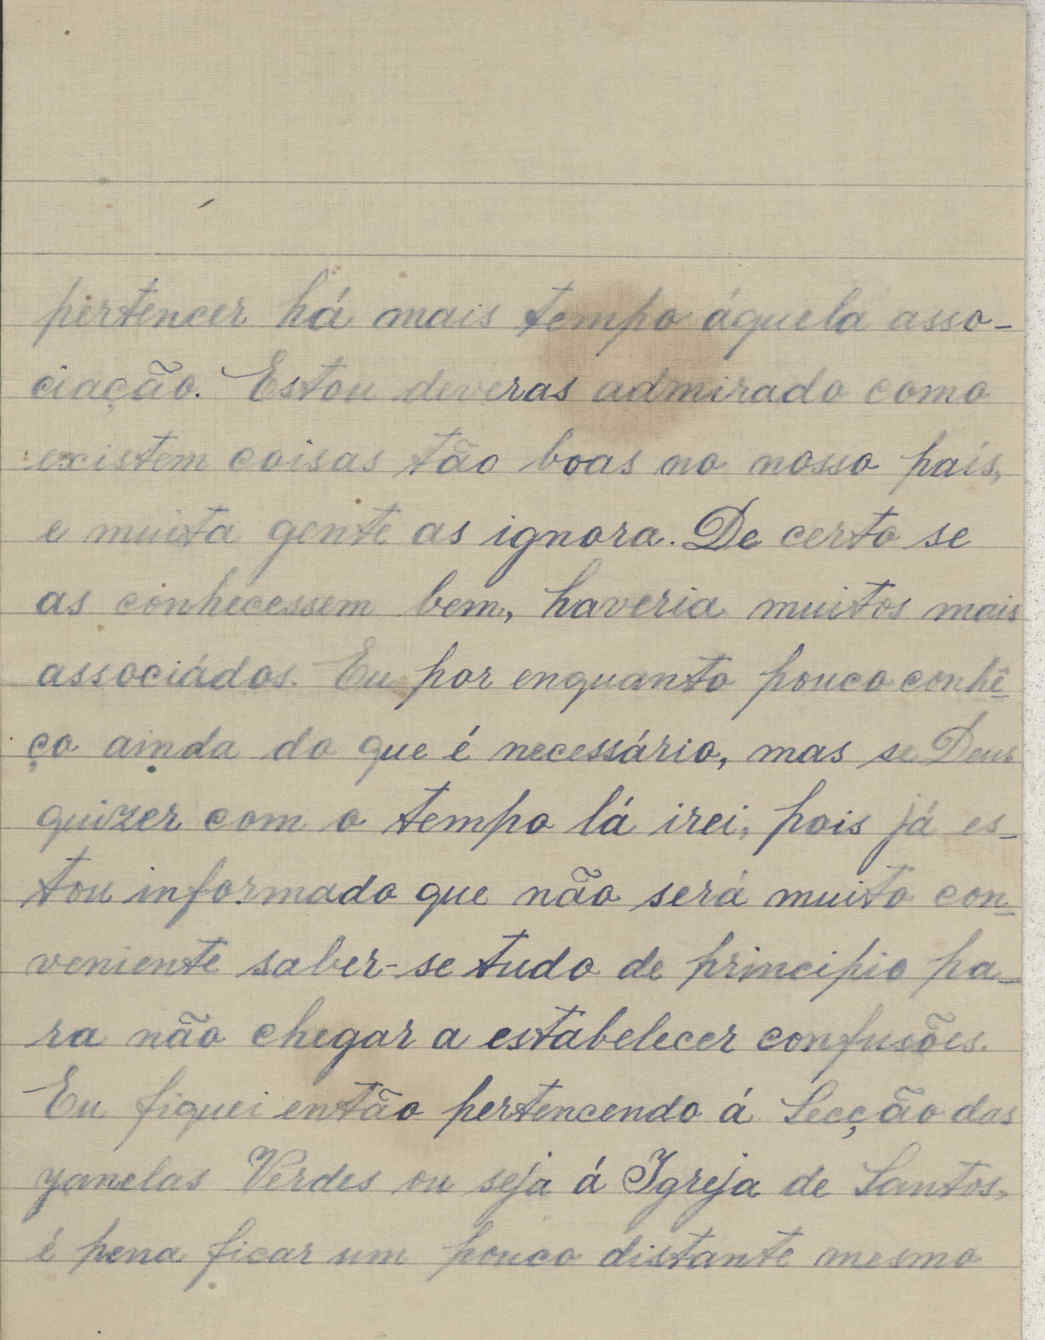 pertencer há mais tempo áquela asso-
ciação. Estou deveras admirado como
existem coisas tão boas no nosso país,
e muita gente as ignora. De certo se
as conhecessem bem, haveria muitos mais
associádos. Eu por enquanto pouco conhê-
ço ainda do que é necessário, mas se Deus
quizer com o tempo lá irei, pois já es-
tou informado que não será muito con-
veniente saber-se tudo de principio pa-
ra não chegar a estabelecer confusões.
Eu fiquei então pertencendo á Secção das
Yanelas Verdes ou seja á Igreja de Santos,
é pena ficar um pouco distante mesmo